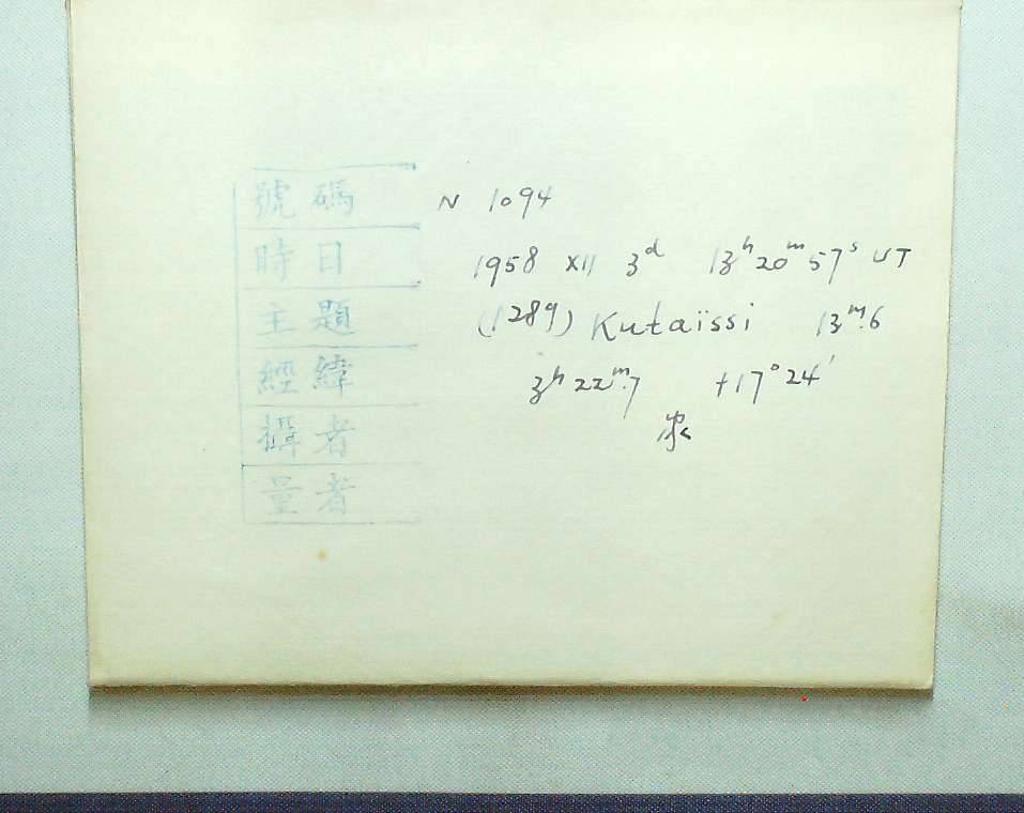 號碼 N 1094
時日 1958 XII 3ᵈ 13ʰ 20ᵐ 57ˢ UT
主題 (1289) Kutaïssi 13ᵐ.6
經緯 3ʰ 22ᵐ.7 +17° 24'
攝者
量者